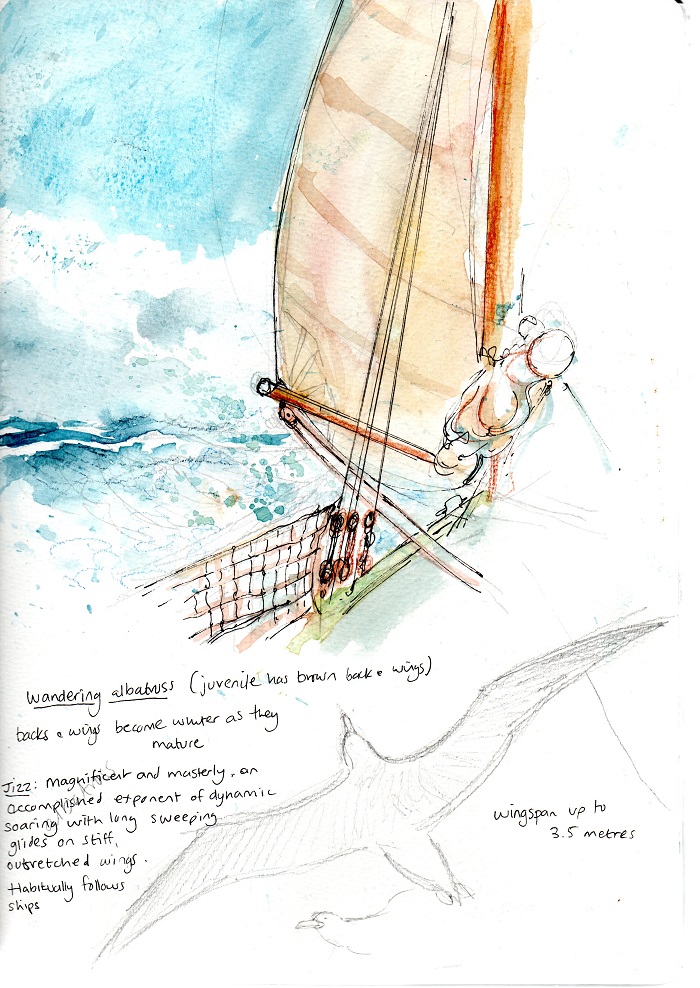 Wandering albatross (juvenile has brown back & wings)
backs & wings become whiter as they
mature
Jizz: magnificent and masterly, an
accomplished exponent of dynamic
soaring with long sweeping
glides on stiff,
outretched wings.
Habitually follows
ships
wingspan up to
3.5 metres